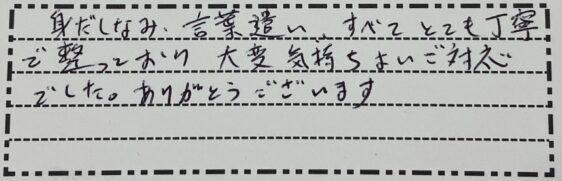 身だしなみ、言葉遣い、すべてとても丁寧
で整っており 大変気持ちよいご対応
でした。ありがとうございます